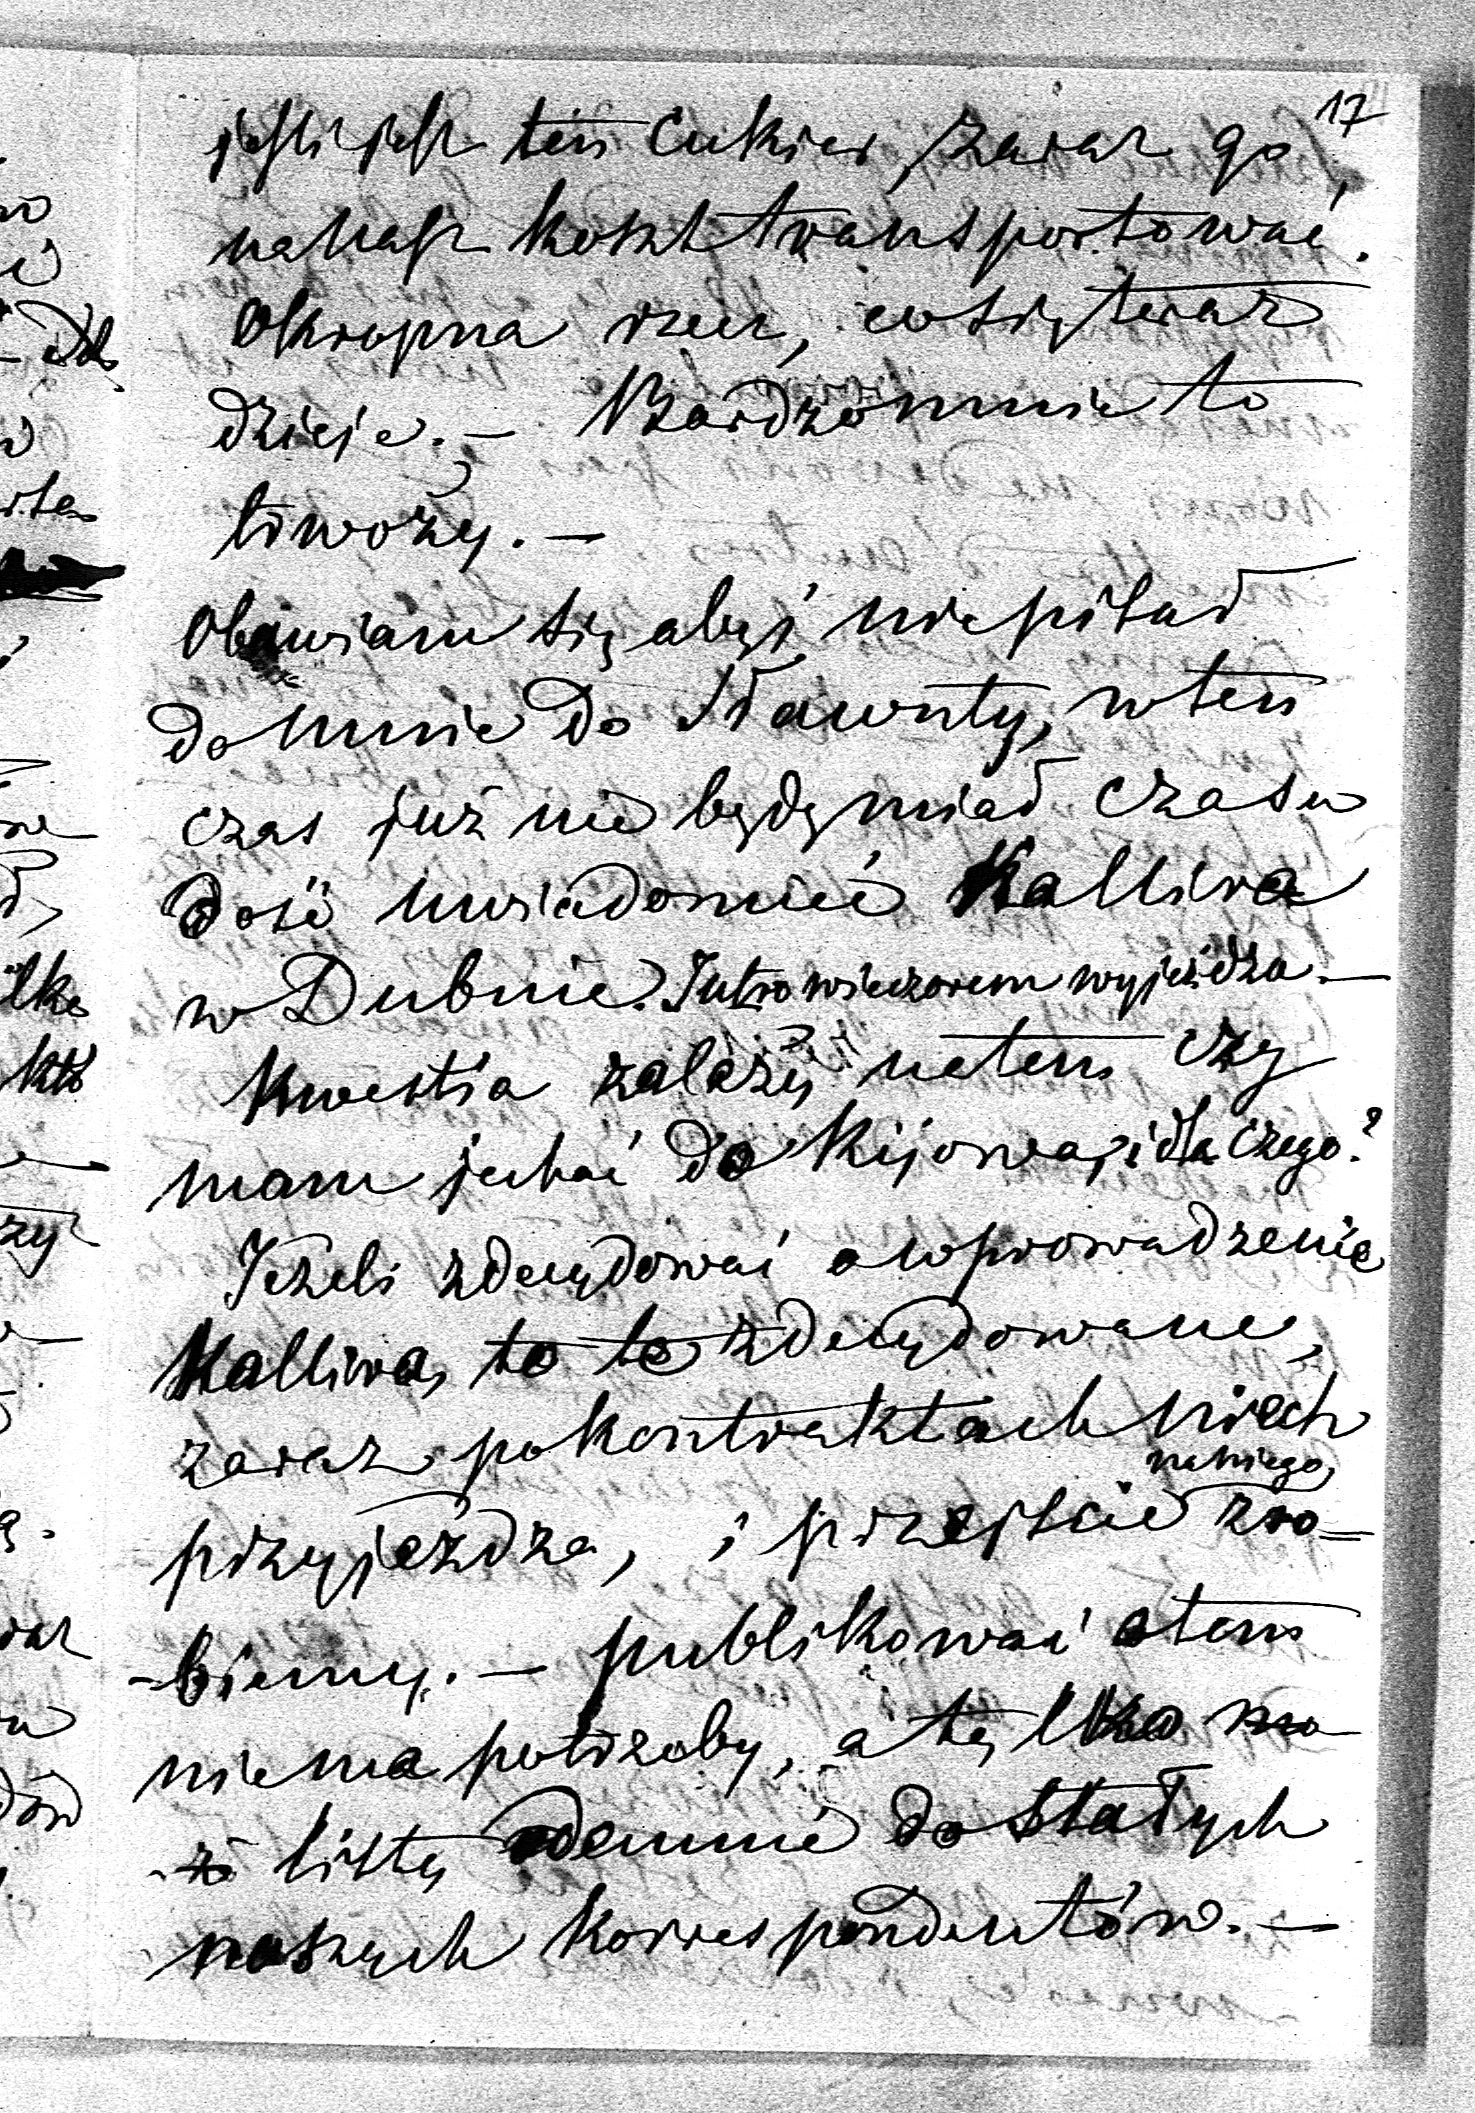 17
jeśli jest ten cukier, zaraz go
na nasz koszt transportować.
Okropna rzecz, co się teraz
dzieje. — Bardzo mnie to
trwoży. —
Obawiam się abyś nie pisał
do mnie do Sławuty, w ten
czas już nie będę miał czasu
dość uwiadomić Kallira
w Dubnie. Jutro wieczorem wyjeżdża. —
Kwestia zależy na tem czy
mam jechać do Kijowa, i dla czego?
Jeżeli zdecydować o wprowadzenie
Kallira, to to zdecydowane,
zaraz po kontraktach niech
na niego
przyjeżdża, i przejście zro=
-biemy. — publikować o tem
niema potrzeby, a tylko
listy odemnie do stałych
naszych korrespondentów. —